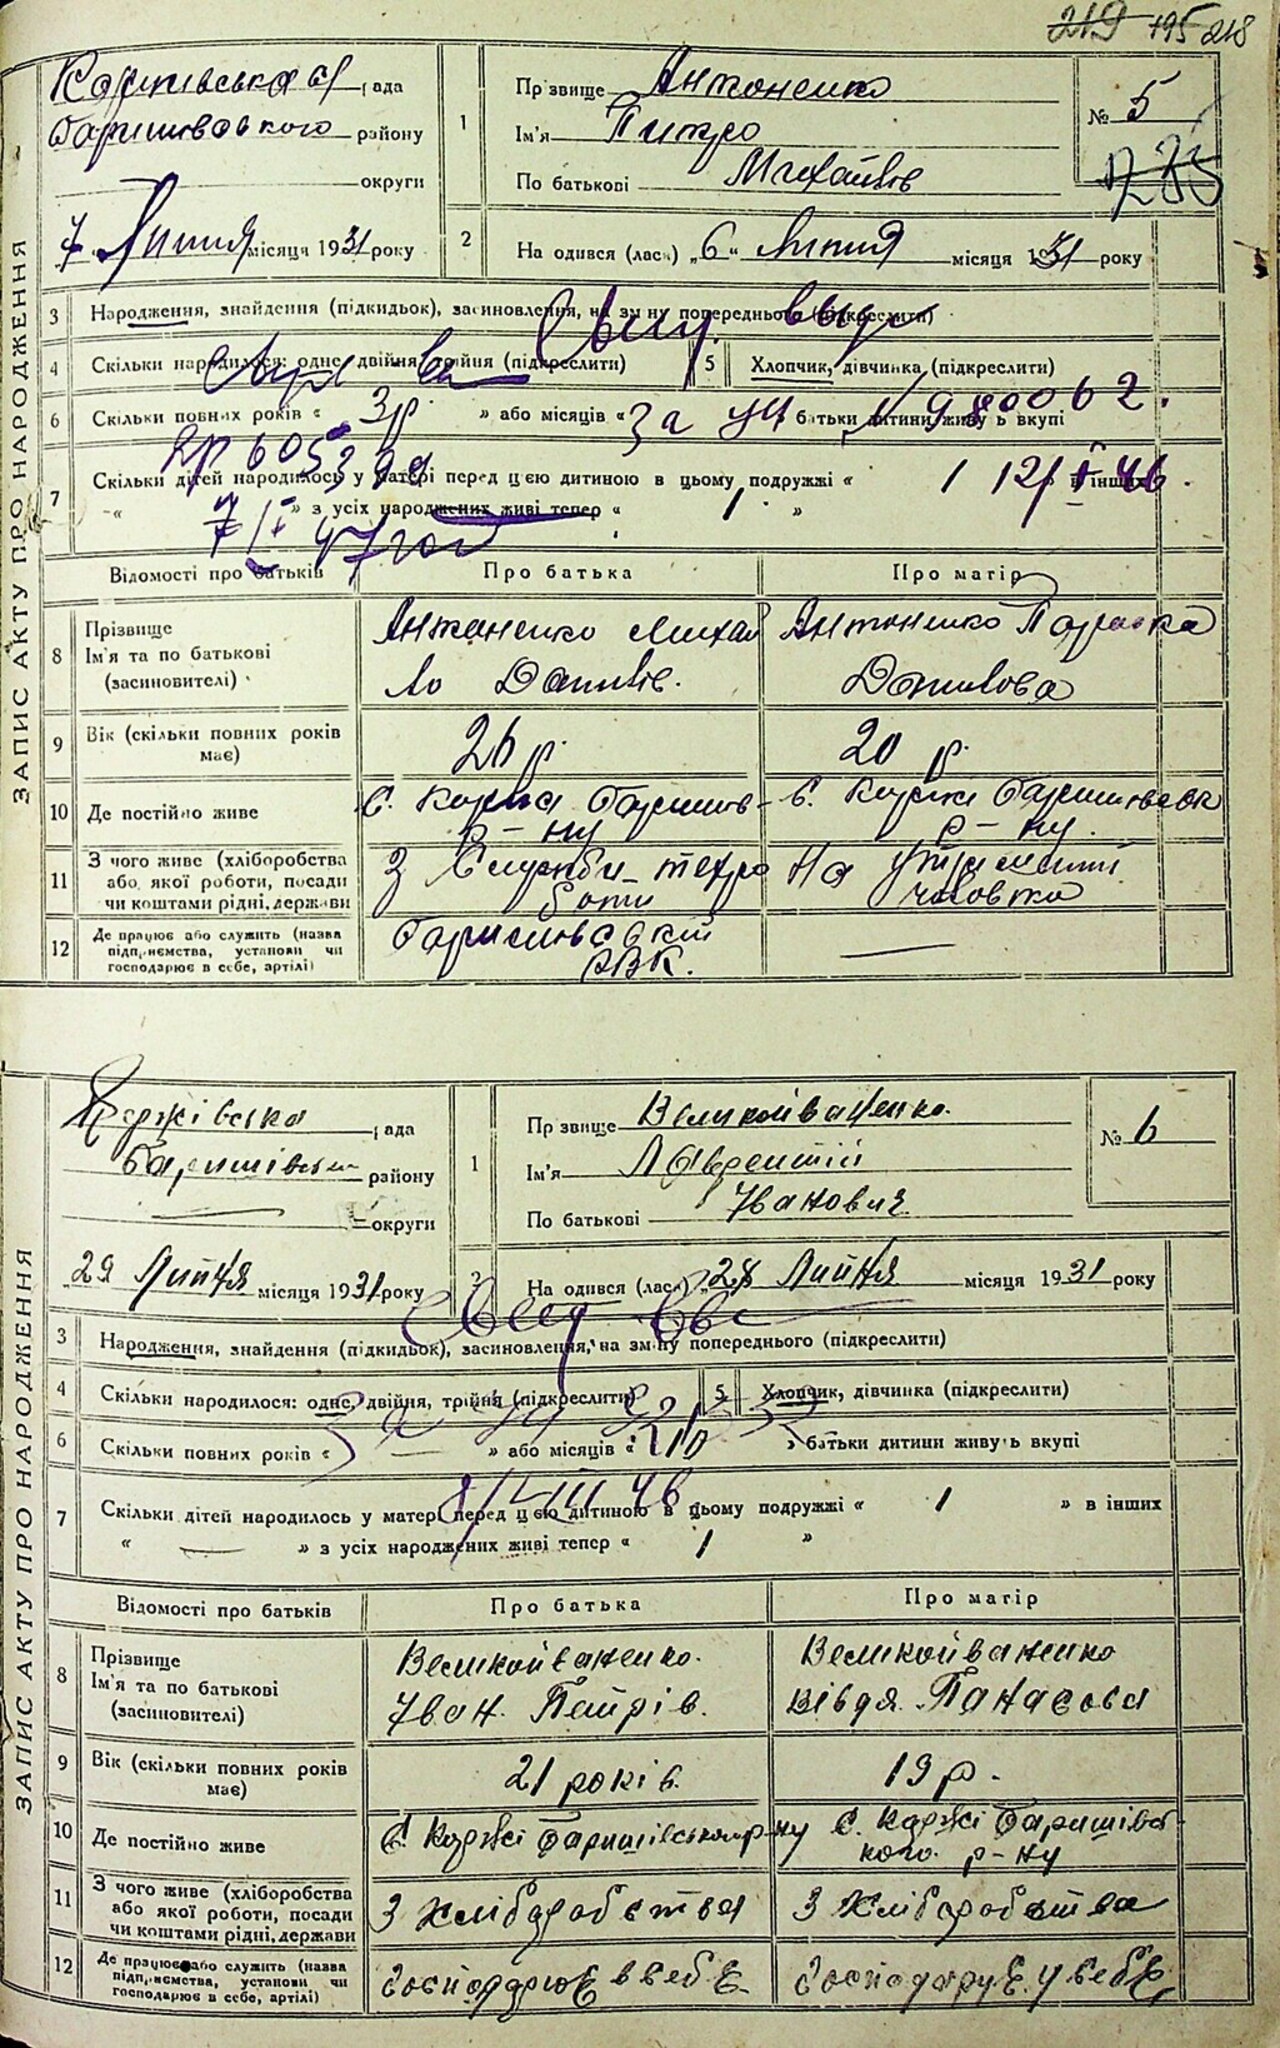 219 195 218
Коржівська с/рада
Баришівського району
округи
7 Липня місяця 1931 року
1
Прізвище Антоненко
Ім'я Питро
По батькові Михайлів
№ 5
2
На одився (лась) „6“ Липня місяця 1931 року
ЗАПИС АКТУ ПРО НАРОДЖЕННЯ
3 Народження, знайдення (підкидьок), засиновлення, на зміну попереднього (підкреслити)
4 Скільки народилося: одне, двійня, трійня (підкреслити)
5 Хлопчик, дівчинка (підкреслити)
6 Скільки повних років « 3р. » або місяців « батьки дитини живуть вкупі
За уч 980062.
605399
7 Скільки дітей народилось у матері перед цією дитиною в цьому подружжі « 1 » в інших
12/I 46
« » з усіх народжених живі тепер « 1 »
7/I 47 год
Відомості про батьків Про батька Про матір
8 Прізвище Ім'я та по батькові (засиновителі)
Антоненко Михайло Данилів.
Антоненко Параска Данилова
9 Вік (скільки повних років має)
26 р.
20 р.
10 Де постійно живе
с. Коржі Баришів- р-ну
с. Коржі Баришівськ р-ну.
11 З чого живе (хліборобства або якої роботи, посади чи коштами рідні, держави
З Служби-
На утриманні чоловіка
12 Де працює або служить (назва підприємства, установи чи господарює в себе, артілі)
Баришівський РВК.
—
Коржівська рада
Баришівськ району
— округи
29 Липня місяця 1931 року
1
Прізвище Великойваненко.
Ім'я Лаврентій
По батькові Іванович
№ 6
2
На одився (лась) „28 Липня місяця 1931 року
ЗАПИС АКТУ ПРО НАРОДЖЕННЯ
3 Народження, знайдення (підкидьок), засиновлення, на зміну попереднього (підкреслити)
4 Скільки народилося: одне, двійня, трійня (підкреслити)
5 Хлопчик, дівчинка (підкреслити)
6 Скільки повних років « — » або місяців « 10 » батьки дитини живуть вкупі
7 Скільки дітей народилось у матері перед цією дитиною в цьому подружжі « 1 » в інших
« — » з усіх народжених живі тепер « 1 »
Відомості про батьків Про батька Про матір
8 Прізвище Ім'я та по батькові (засиновителі)
Великойваненко. Іван. Петрів.
Великойваненко Вівдя. Панасова
9 Вік (скільки повних років має)
21 років.
19 р.
10 Де постійно живе
С. Коржі Баришівськом р-ну
С. Коржі Баришівського. р-ну
11 З чого живе (хліборобства або якої роботи, посади чи коштами рідні, держави
З хліборобства
З хліборобства
12 Де працює або служить (назва підприємства, установи чи господарює в себе, артілі)
Господарює в себе
Господарує. у себе